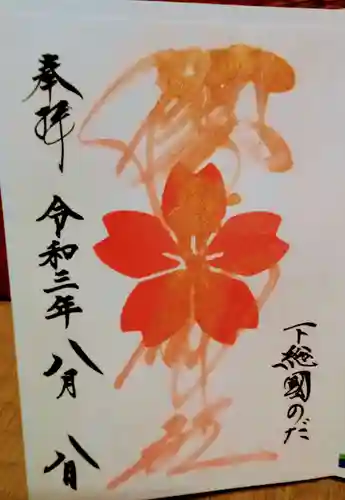 奉拝
令和三年八月八日
下総國のだ